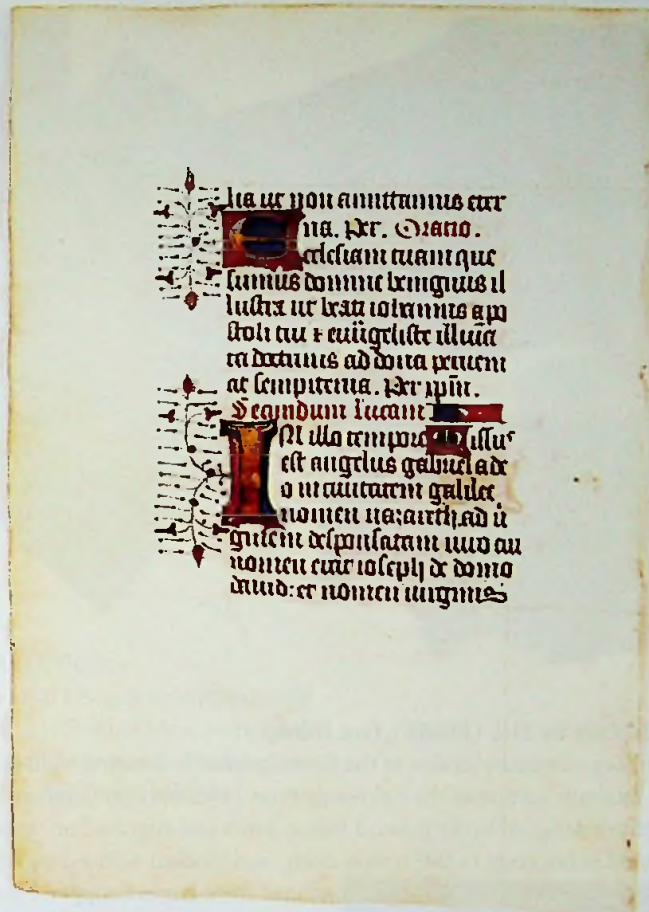 lia ut non amittamus eter
na. Per. Oratio.
Ecclesiam tuam que
sumus domine benignus il
lustra ut beati iohannis apo
stoli tui ⁊ euãgeliste illuīa
ta doctrinis ad dona perueni
at sempiterna. Per xp̄m.
Secundum lucam
IN illo tempore Missusˢ
est angelus gabriel a de
o in ciuitatem galilee
nomen nazareth. ad ū
ginem desponsatam uiro cū
nomen erat ioseph de domo
dauid: et nomen uirginis